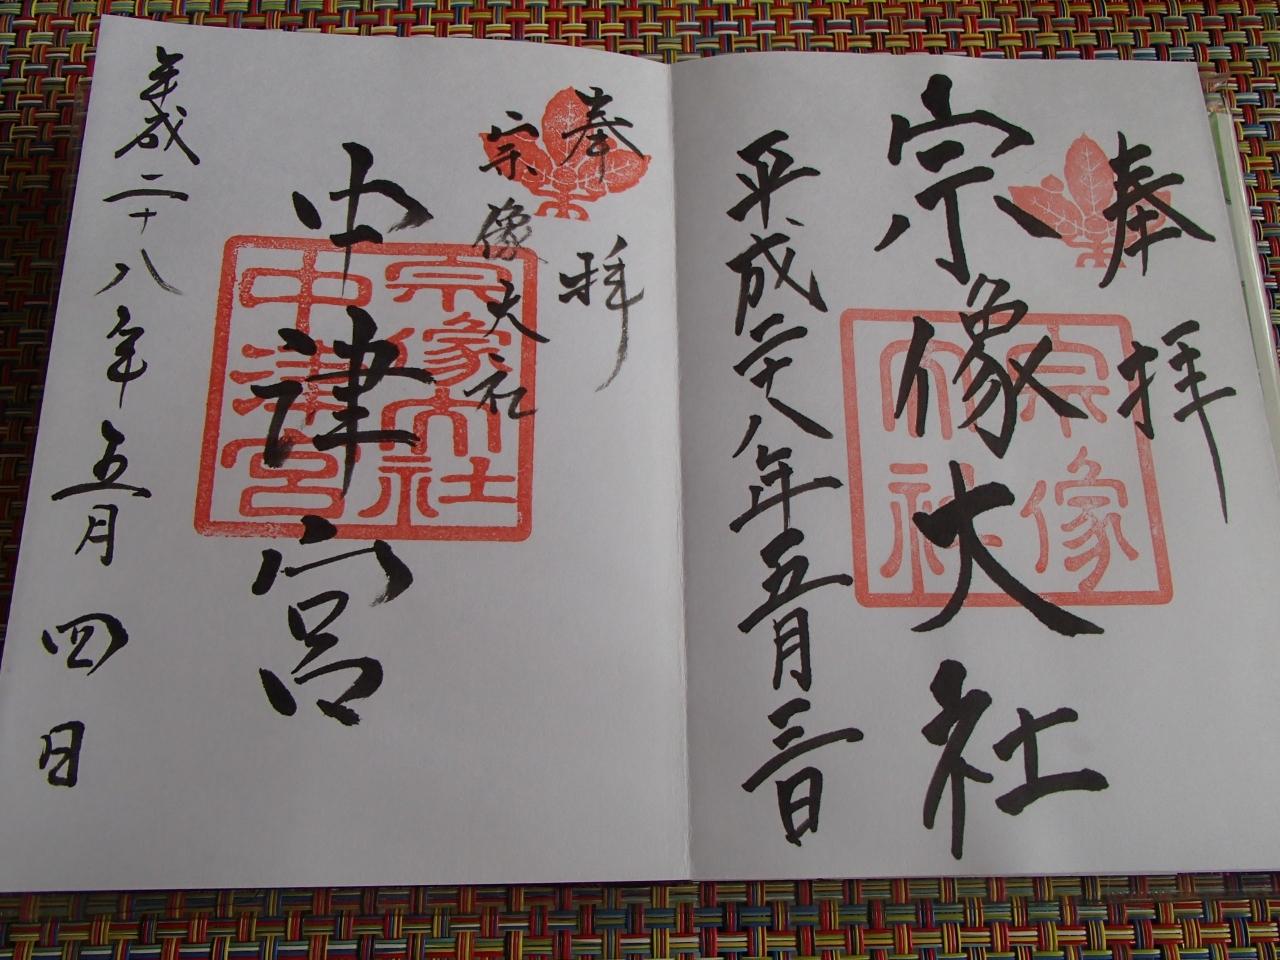 奉拝
宗像大社
宗像大社
平成二十八年五月三日
奉拝
宗像大社
中津宮
宗像大社
中津宮
平成二十八年五月四日